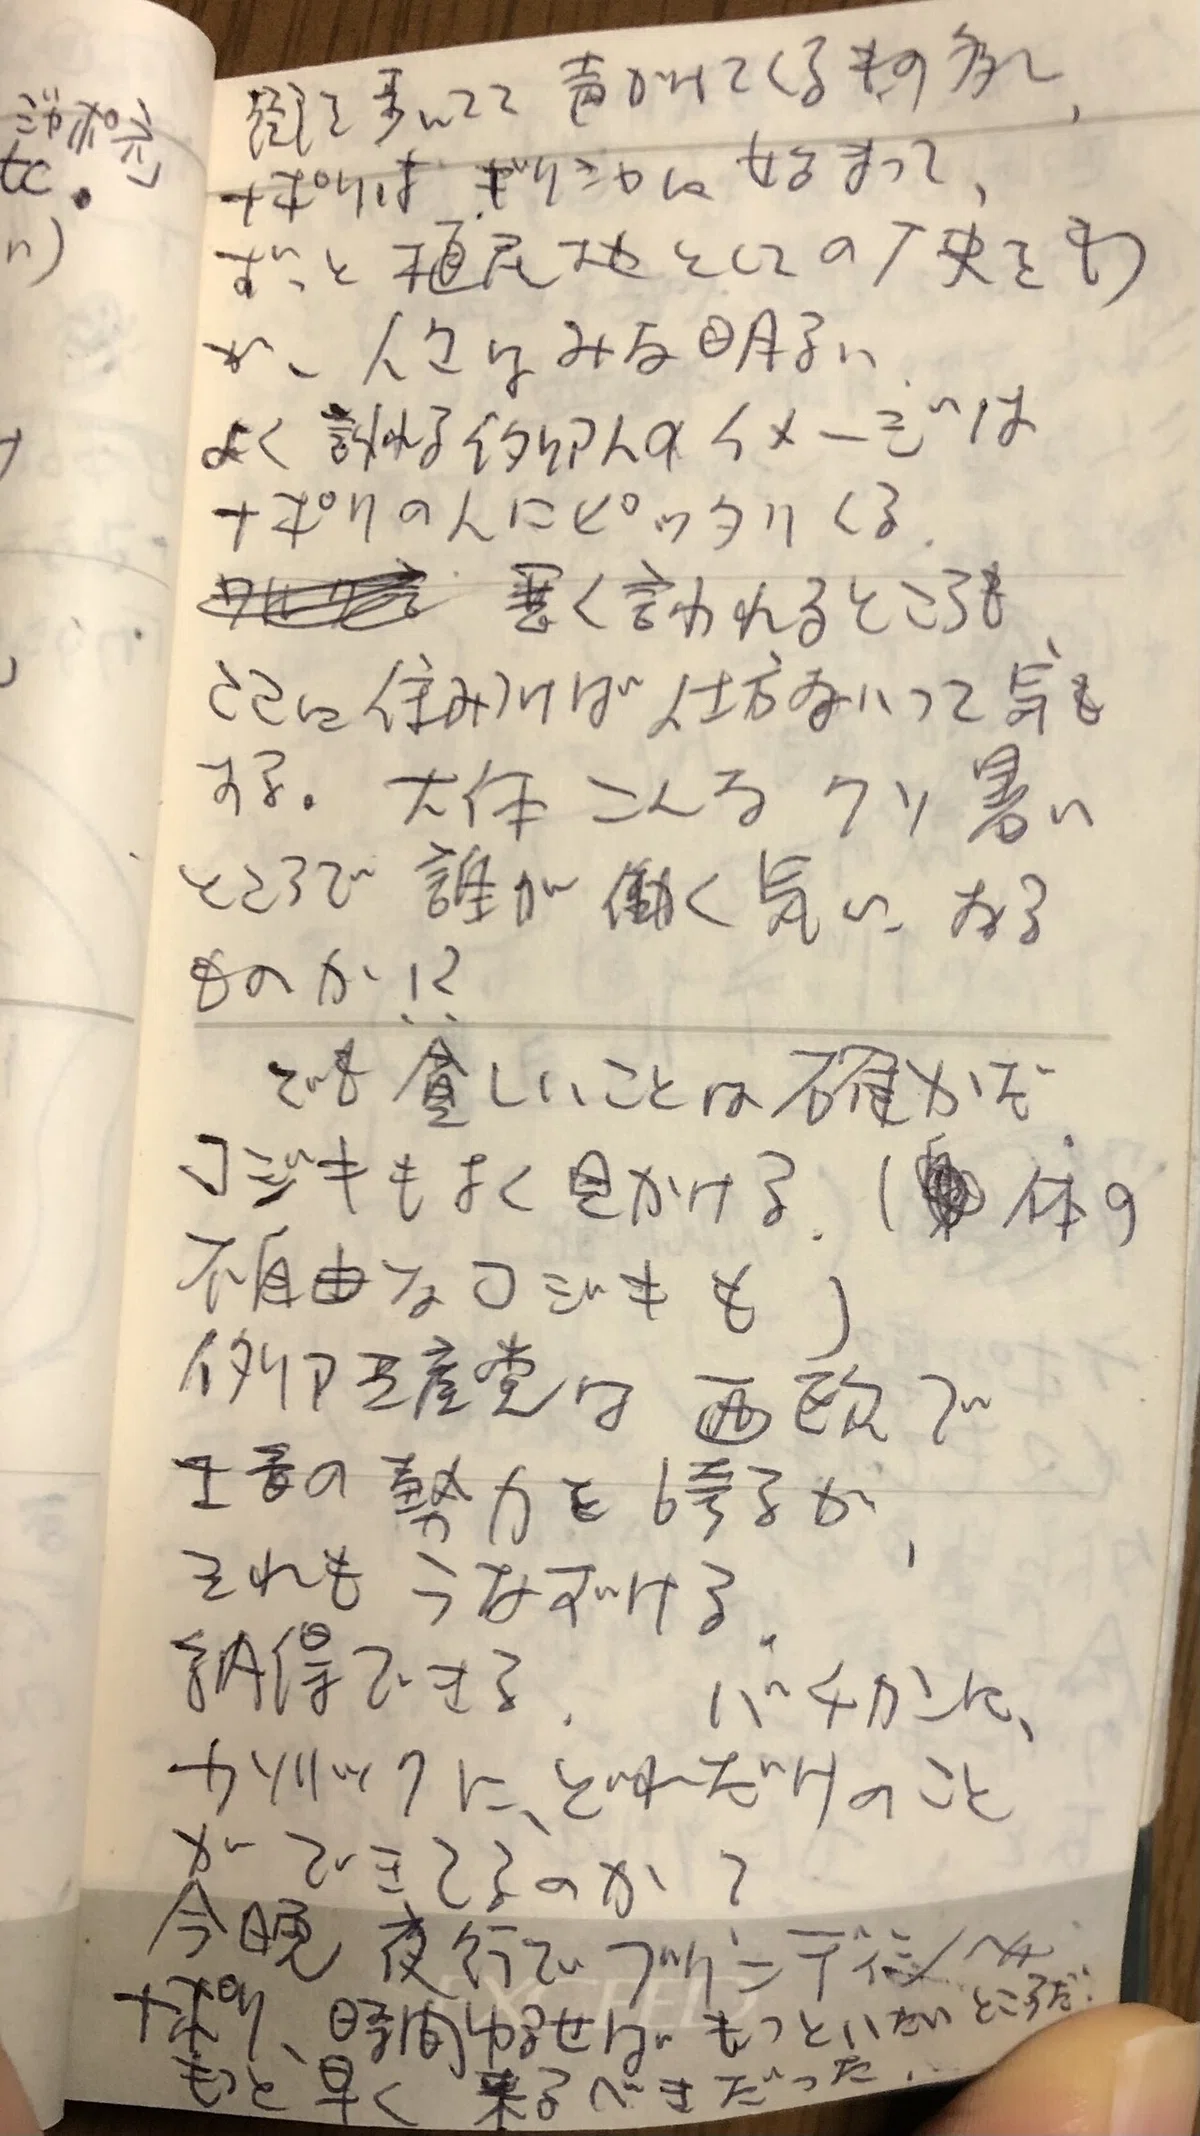 ジカポネ」
tc.
n)
街を歩いてて声かけてくるもの多し、
ナポリはギリシャに始まって、
ずっと植民地としての歴史をもつ
が、人々はみな明るい.
よく言われるイタリア人のイメージは
ナポリの人にピッタリくる.
悪く言われるところも、
ここに住みつけば仕方ないって気も
する。大体こんなクソ暑い
ところで誰が働く気になる
ものか!?
でも貧しいことは確かだ.
コジキもよく見かける.(体の
不自由なコジキも)
イタリア共産党は西欧で
一番の勢力を誇るが,
それもうなずける.
納得できる. バチカンに、
カソリックに、どれだけのこと
ができてるのか?
今晩夜行でブリンディシへ
ナポリ、時間ゆるせばもっといたいところだ.
もっと早く来るべきだった...